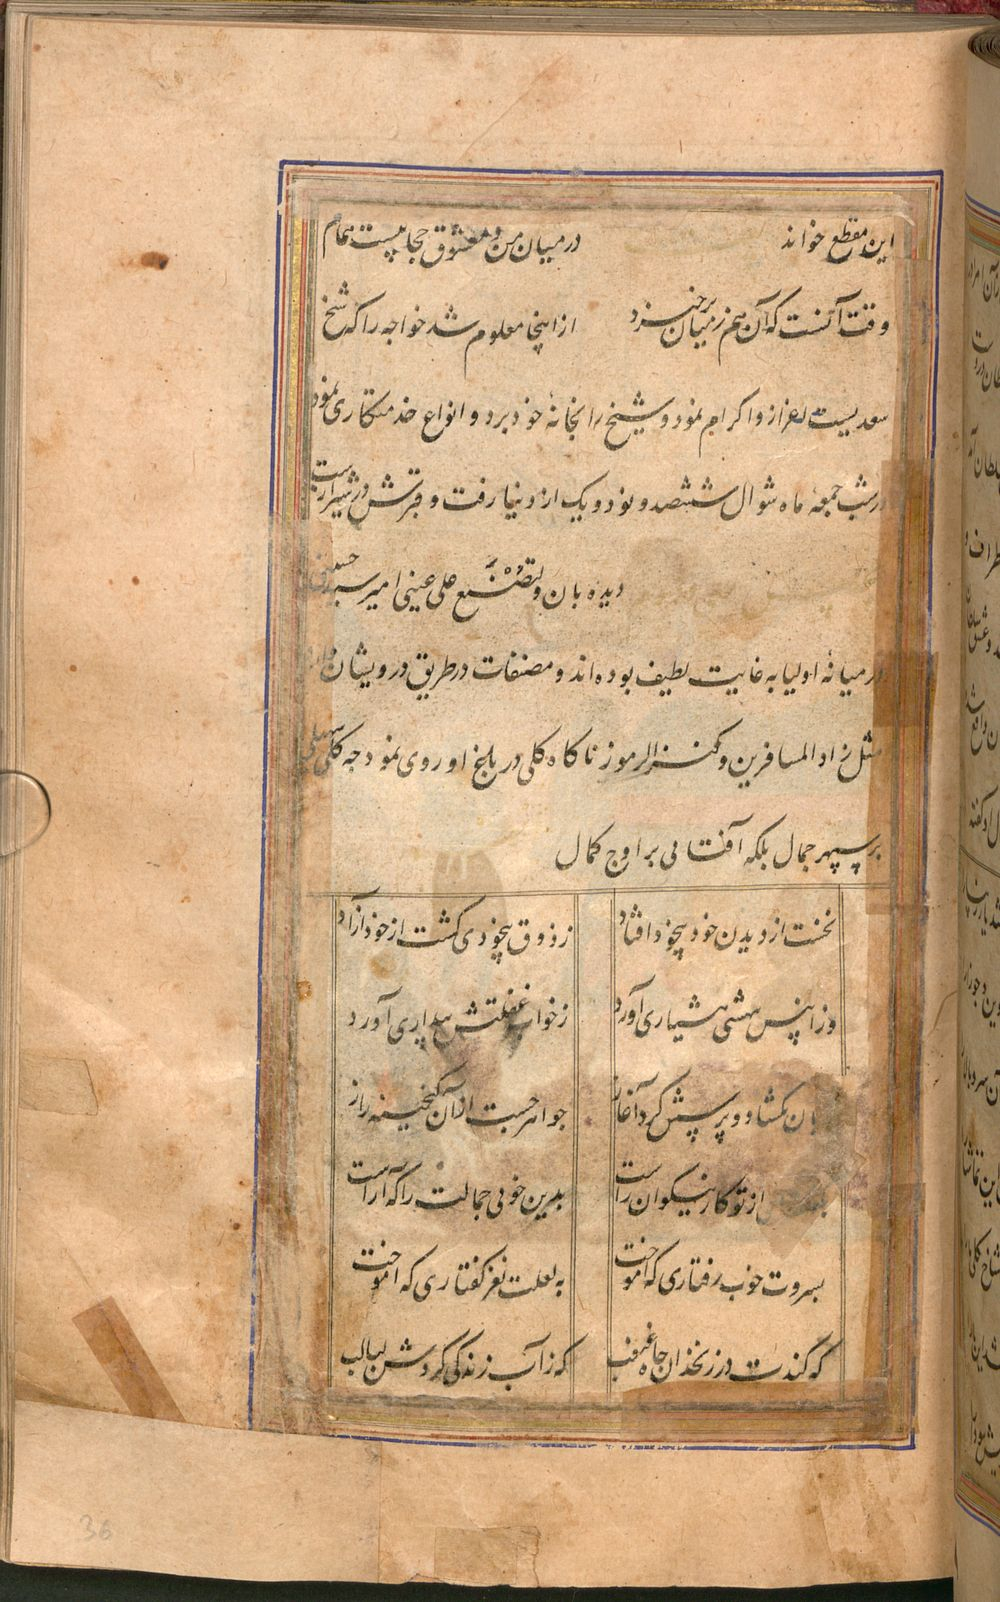 این مقطع خواند در میان من و معشوق حجابیست همام
وقت آنست که آن هم ز میان برخیزد ازاینجا معلوم شد خواجه را که شیخ
سعدیست اعزاز و اکرام نمود و شیخ را بخانهٔ خود برد و انواع خدمتکاری نمود
در شب جمعهٔ ماه شوال ششصد و نود و یک از دنیا رفت و قبرش در شیراز است
دیده بان ولتصنع علی عینی امیر سید حسینی
در میانهٔ اولیا به غایت لطیف بوده اند و مصنفات در طریق درویشان
مثل زاد المسافرین و کنز الرموز ناکاه کلی در بلخ او روی نمود چه کلی
بر سپهر جمال بلکه آفتابی بر اوج کمال
نخست از دیدن خود بیخود افتاد ز ذوق بیخودی کشت از خود آزاد
وزان پس هشی هشیاری آورد ز خواب غفلتش بیداری آورد
بان کشاد و پرسش کرد آغاز جواهر جست ازان کنجینه راز
از تو کار نیکوان راست بدین خوبی جمالت را که آراست
بسروت خوب رفتاری که آموخت به لعلت نغز کفتاری که آموخت
که کندت در زنخدان چاه غبغب که ز آب زندکی کردش لبالب
36